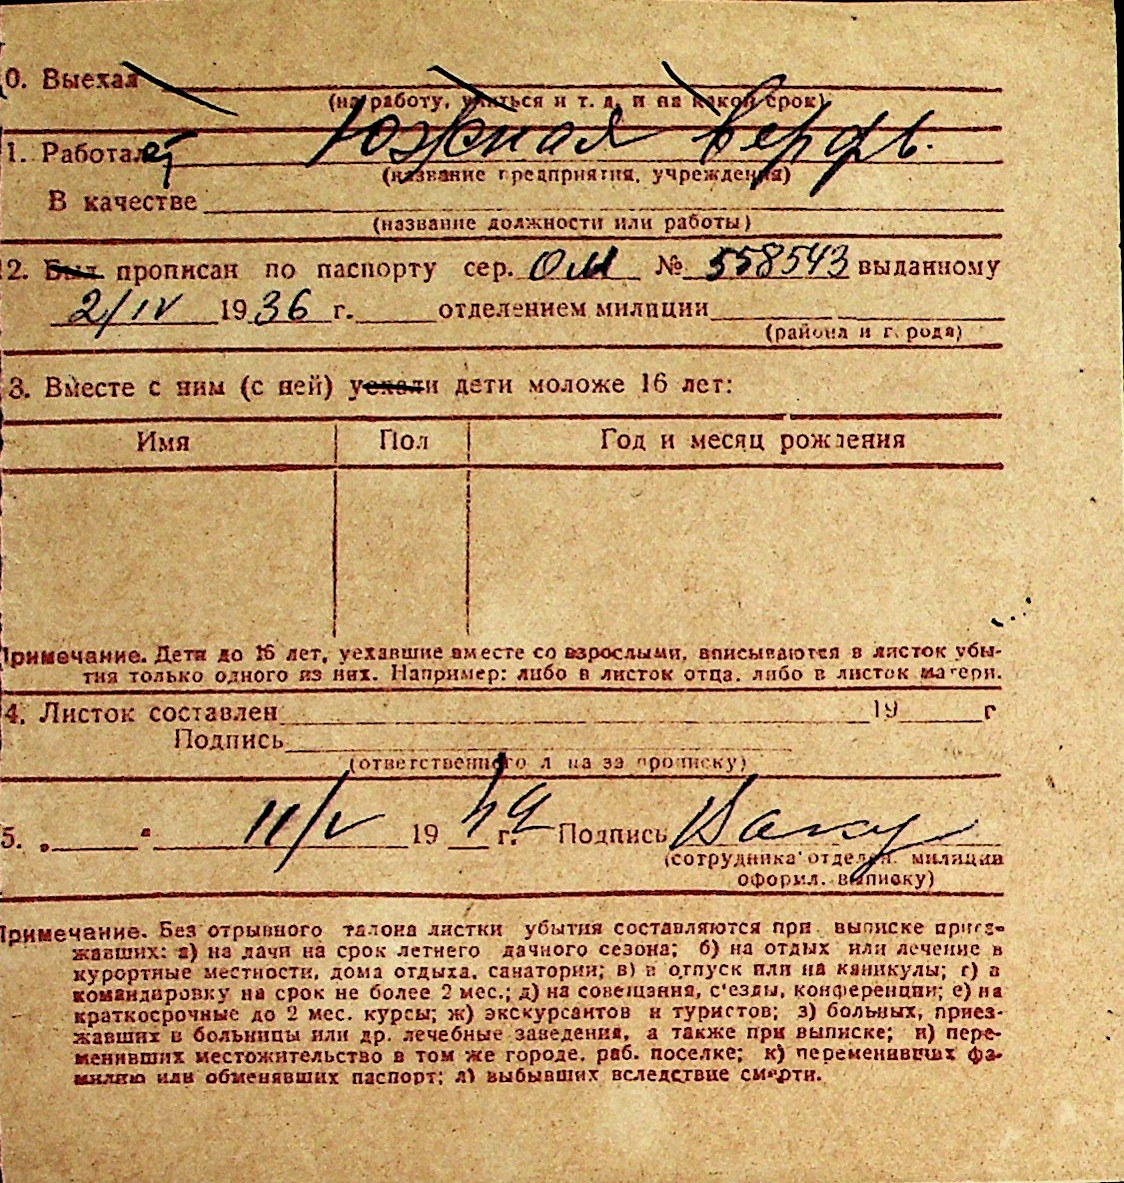 0. Выехал
(на работу, учиться и т. д. и на какой срок)
1. Работает Южная верфь.
(название предприятия, учреждения)
В качестве
(название должности или работы)
2. Был прописан по паспорту сер. ОМ № 558543 выданному
2/IV 1936 г. отделением милиции
(района и города)
3. Вместе с ним (с ней) уехали дети моложе 16 лет:
Имя Пол Год и месяц рождения
Примечание. Дети до 16 лет, уехавшие вместе со взрослыми, вписываются в листок убы-
тия только одного из них. Например: либо в листок отца, либо в листок матери.
4. Листок составлен 19 г
Подпись
(ответственного лица за прописку)
5. „ " 11/V 19 г. Подпись
(сотрудника отделен. милиции
оформ. выписку)
Примечание. Без отрывного талона листки убытия составляются при выписке приез-
жавших: а) на дачи на срок летнего дачного сезона; б) на отдых или лечение в
курортные местности, дома отдыха, санатории; в) в отпуск или на каникулы; г) в
командировку на срок не более 2 мес.; д) на совещания, с'езды, конференции; е) на
краткосрочные до 2 мес. курсы; ж) экскурсантов и туристов; з) больных, приез-
жавших в больницы или др. лечебные заведения, а также при выписке; и) пере-
менивших местожительство в том же городе, раб. поселке; к) переменивших фа-
милию или обменявших паспорт; л) выбывших вследствие смерти.